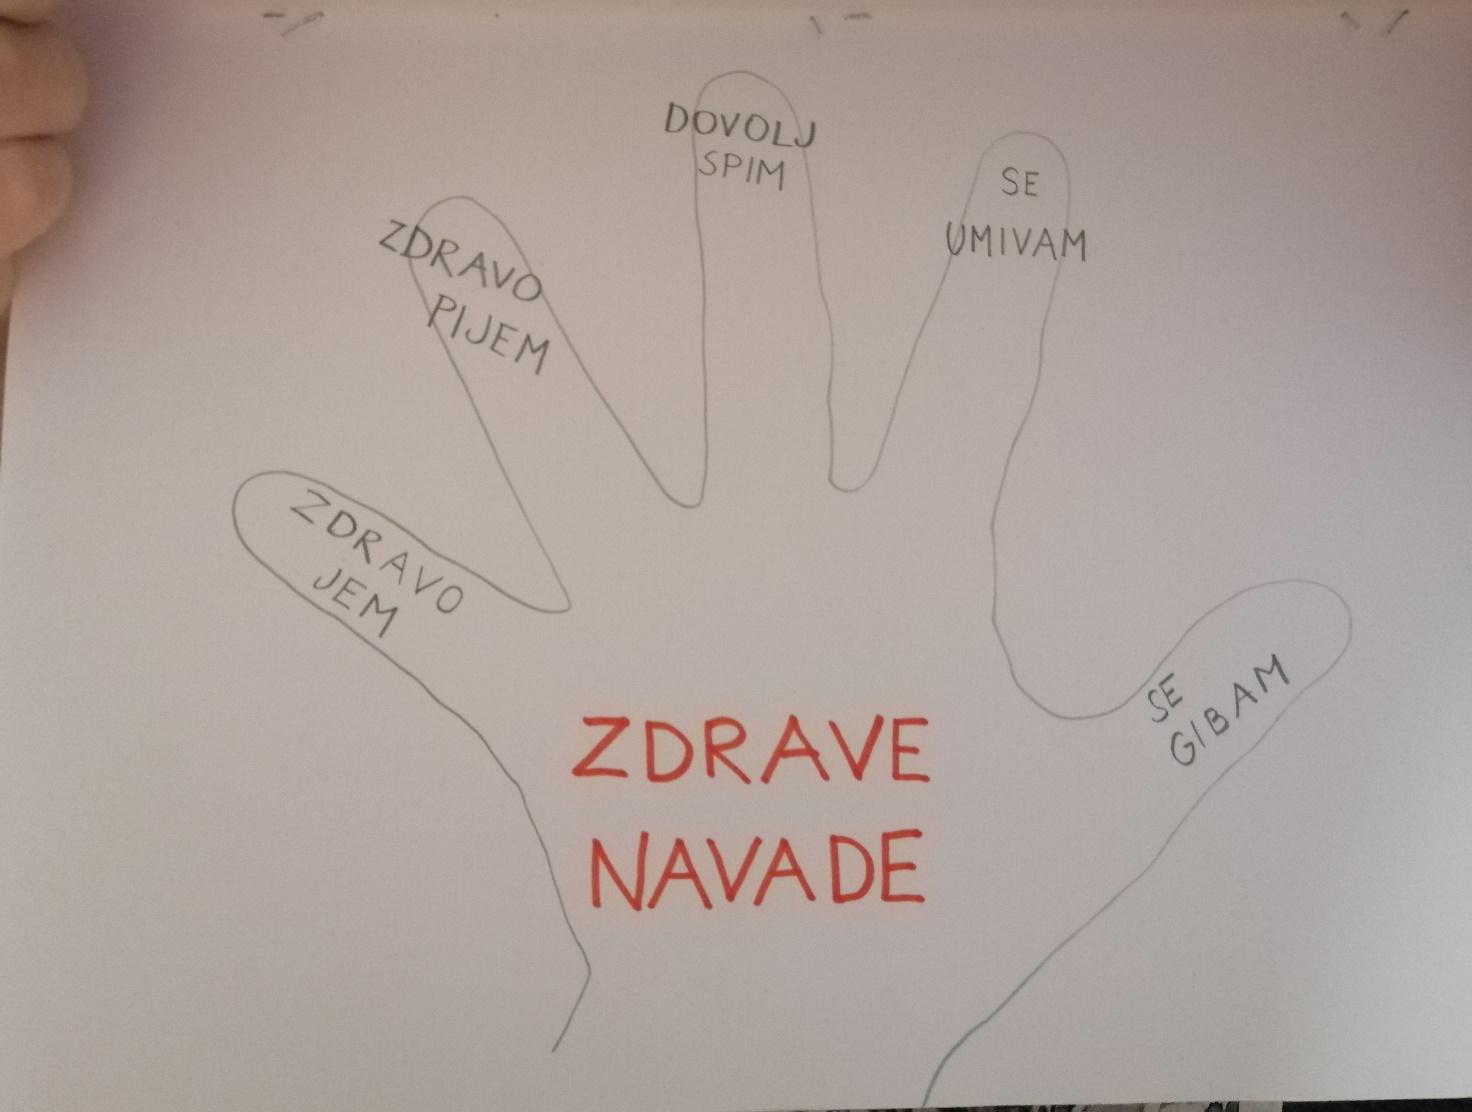 ZDRAVO
JEM
ZDRAVO
PIJEM
DOVOLJ
SPIM
SE
UMIVAM
SE
GIBAM
ZDRAVE
NAVADE